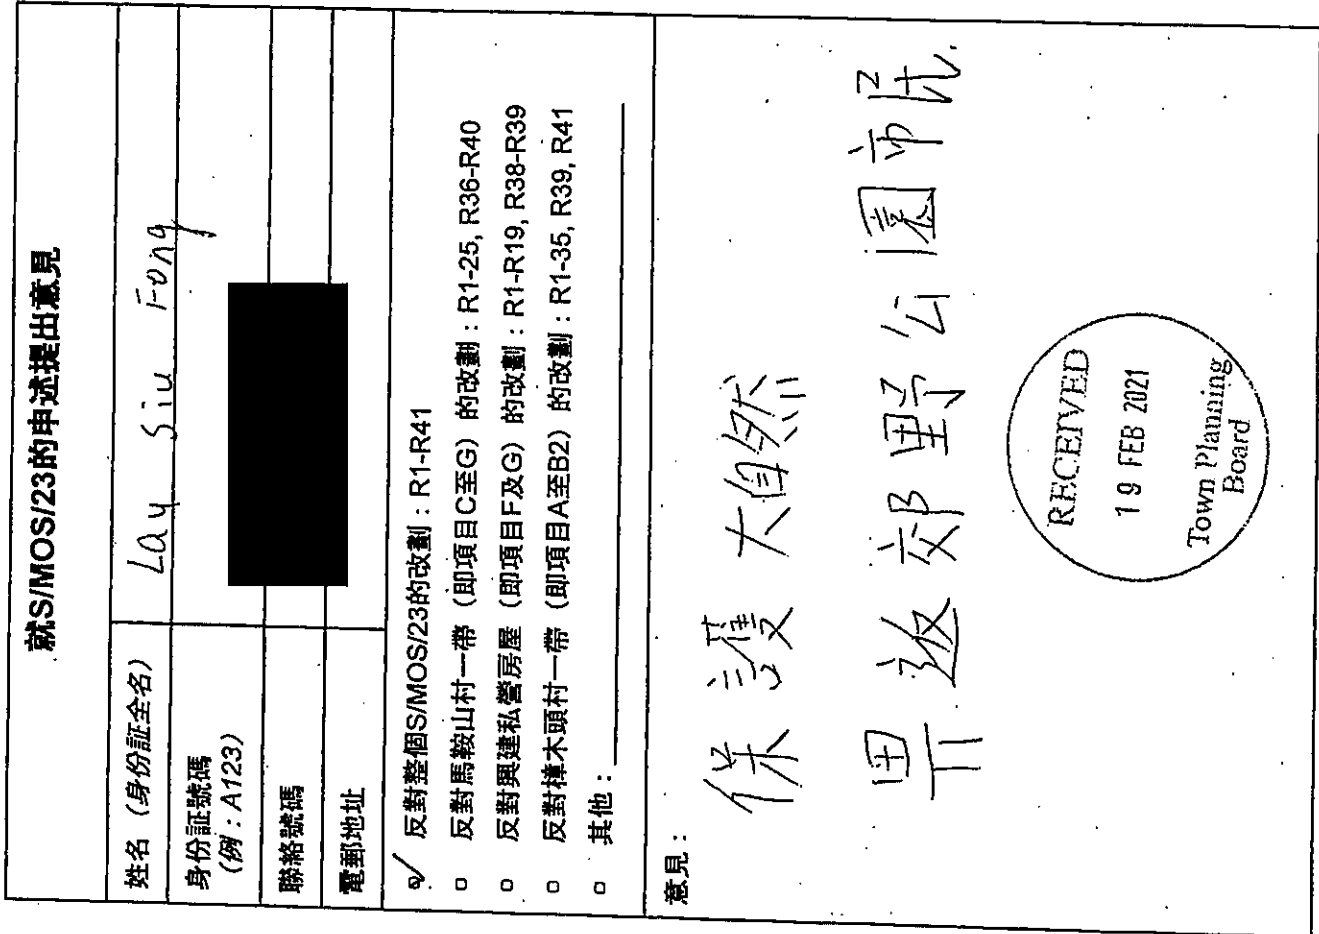 就S/MOS/23的申述提出意見
姓名（身份証全名）
Lau Siu Fong
身份証號碼
（例：A123）
聯絡號碼
電郵地址
✓ 反對整個S/MOS/23的改劃：R1-R41
□ 反對馬鞍山村一帶（即項目C至G）的改劃：R1-25, R36-R40
□ 反對興建私營房屋（即項目F及G）的改劃：R1-R19, R38-R39
□ 反對樟木頭村一帶（即項目A至B2）的改劃：R1-35, R39, R41
□ 其他：
意見：
保護 大自然
畀返郊野公園市民.
RECEIVED
19 FEB 2021
Town Planning
Board